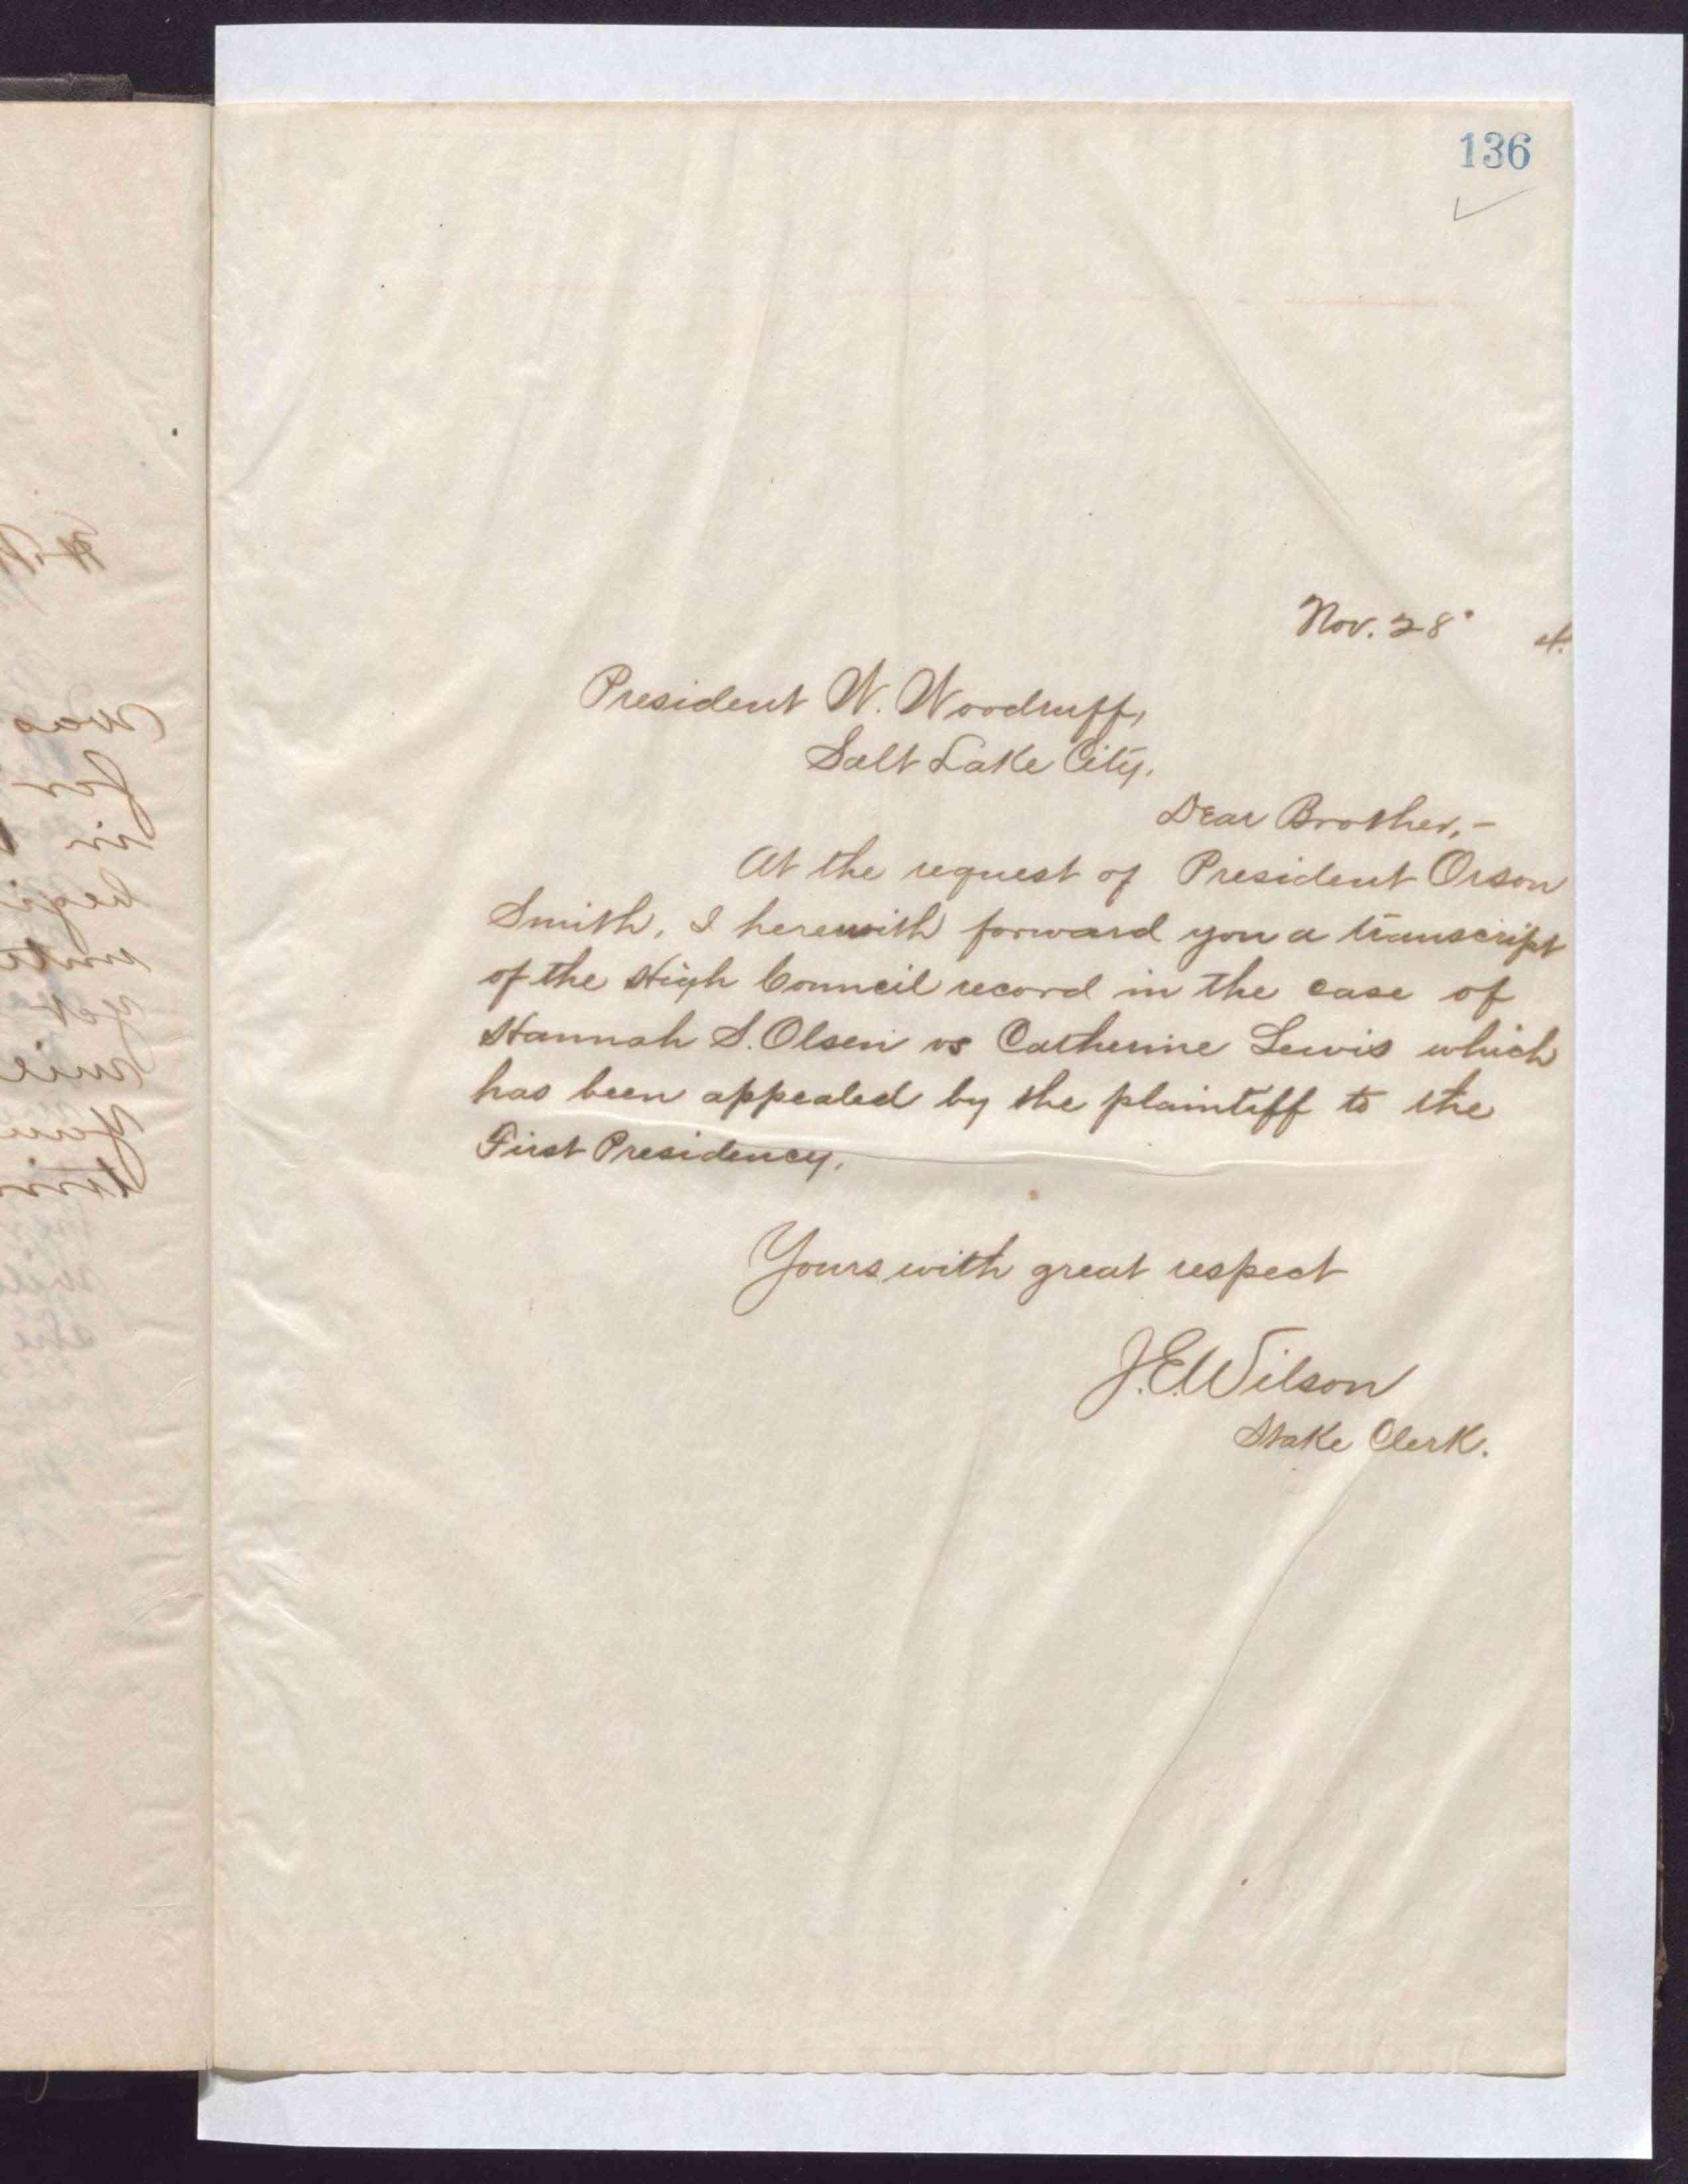 136
Nov. 28"
President W. Woodruff,
Salt Lake City.
Dear Brother, -
At the request of President Orson
Smith, I herewith forward you a transcript
of the High Council record in the case of
Hannah S. Olsen vs Catherine Lewis which
has been appealed by the plaintiff to the
First Presidency.
Yours with great respect
J. E. Wilson
Stake Clerk.